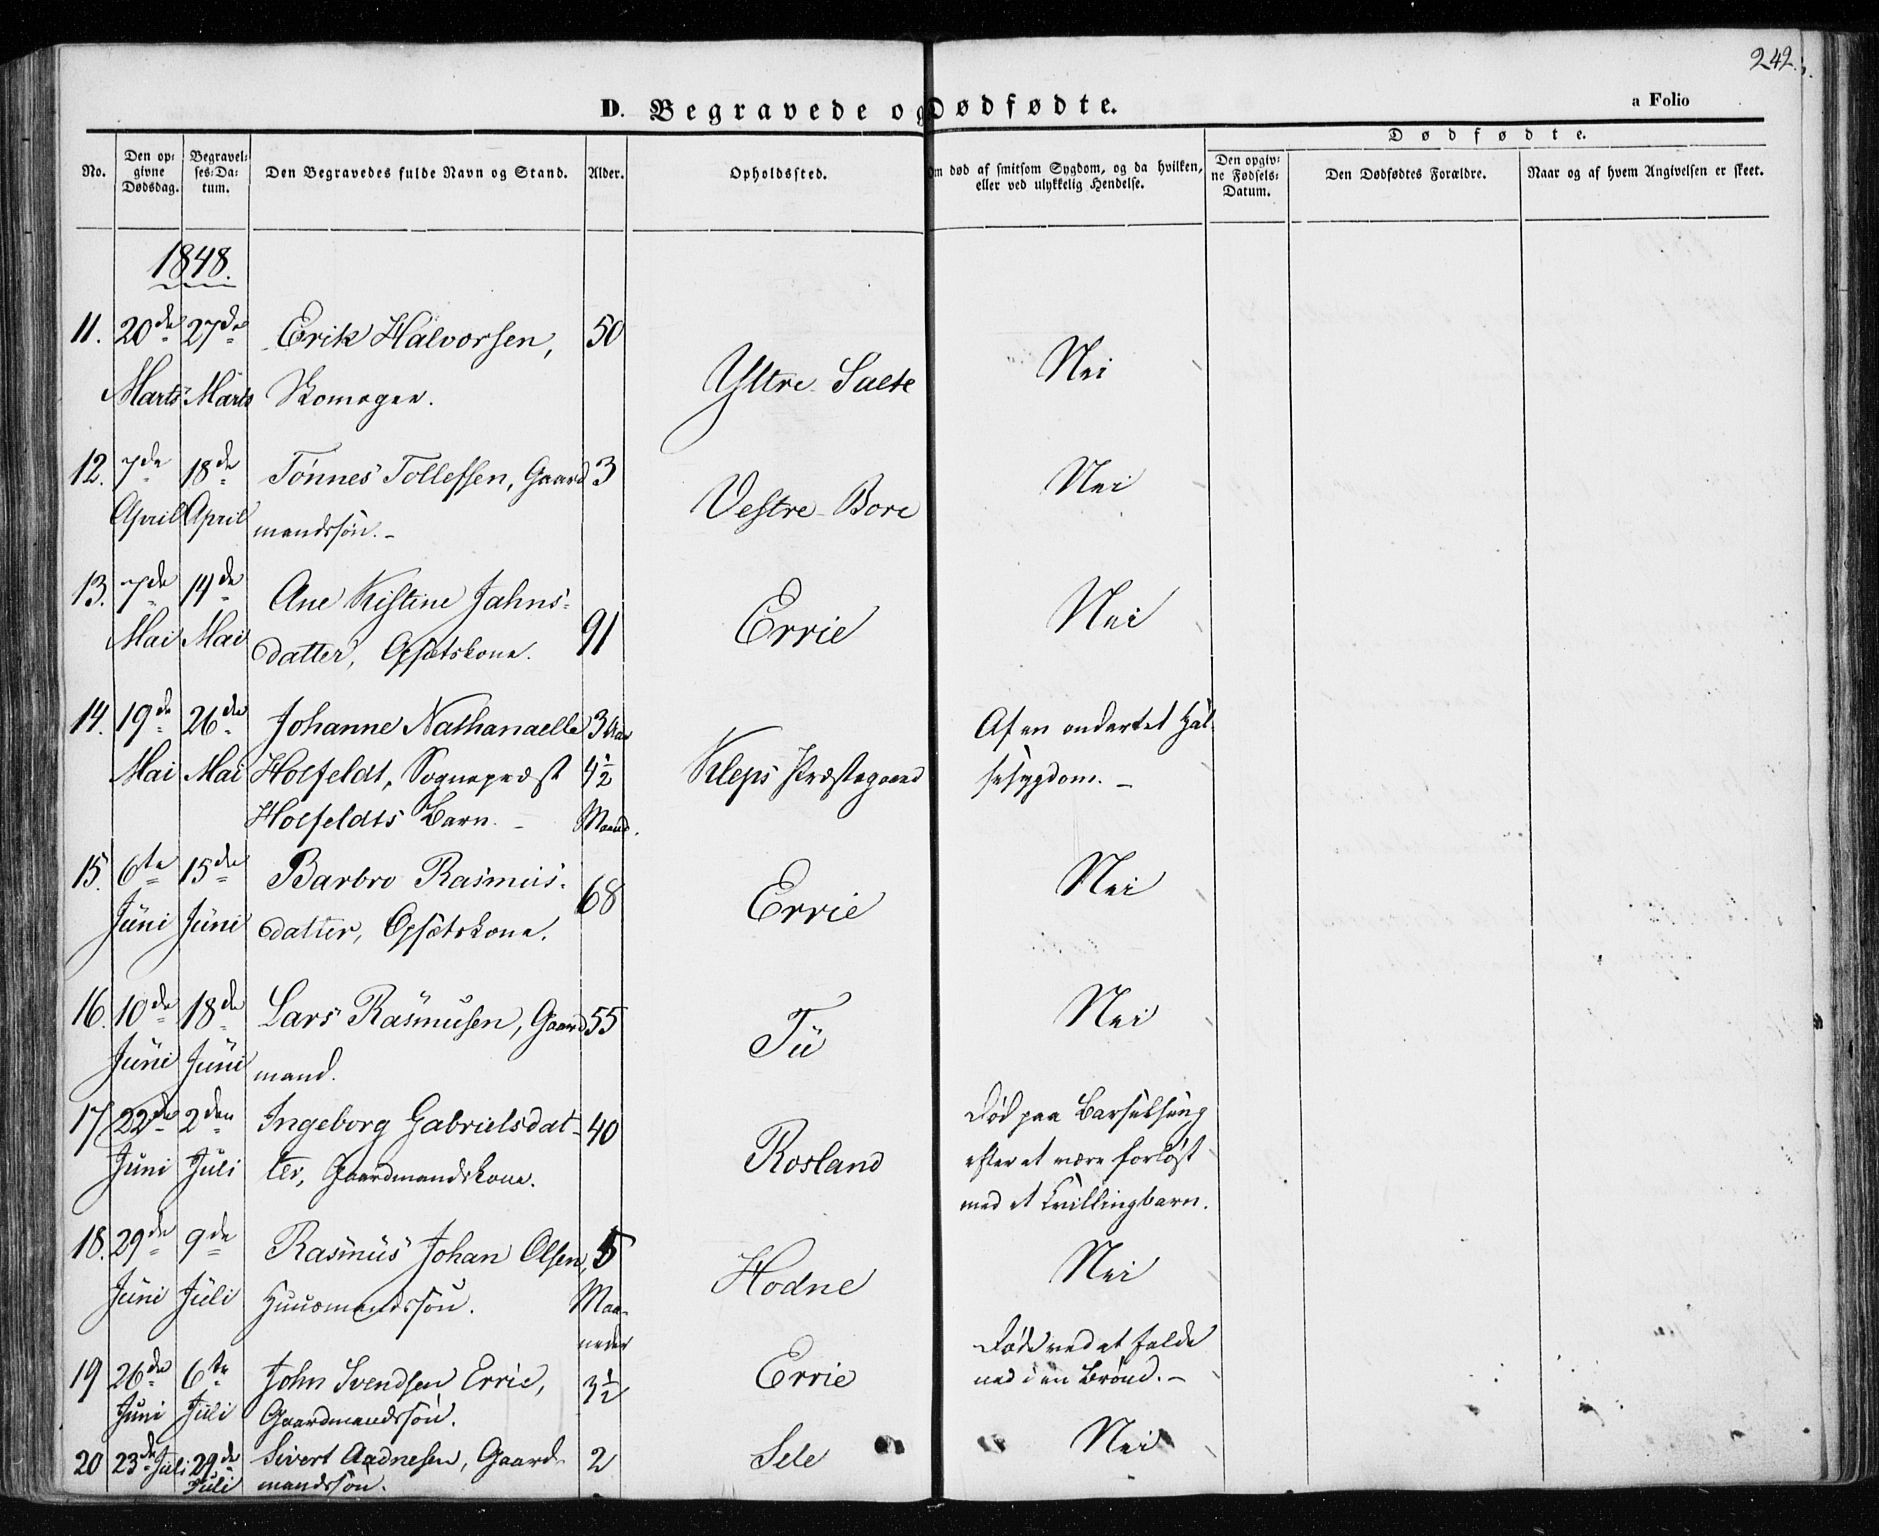 242.
D. Begravede og Dødfødte.
a Folio
No.
Den opgivne Dødsdag.
Begravelses-Datum.
Den Begravedes fulde Navn og Stand.
Alder.
Opholdssted.
Om død af smitsom Sygdom, og da hvilken,
eller ved ulykkelig Hendelse.
Dødfødte.
Den opgivne Fødsels-Datum.
Den Dødfødtes Forældre.
Naar og af hvem Angivelsen er skeet.
1848.
11. 20de 27de Erik Halvorsen, 50
Marts Marts Skomager. Yttre Salte Nei
12. 7de 18de Tönnes Tollefsen, Gaard 3
April April mandssön. Vestre Bore Nei
13. 7de 14de Ane Kistine Jahns-
Mai Mai datter, Opsætskone. 91 Errie Nei
14. 19de 26de Johanne Nathanaelle 3 Aar Af en ondartet Hal
Mai Mai Holfeldt, Sognepræst 4½ Kleps Præstegaard sesygdom.
Holfeldts Barn. Maaned.
15. 6te 15de Barbro Rasmus- 68 Errie Nei
Juni Juni datter, Opsætskone.
16. 10de 18de Lars Rasmusen, Gaard 55 Tu Nei
Juni Juni mand.
17 22de 2den Ingeborg Gabrielsdat- 40 Død paa Barselseng
Juni Juli ter, Gaardmandskone. Rosland efter at være forløst
med et Tvillingbarn.
18. 29de 9de Rasmus Johan Olsen, 5 Hodne Nei
Juni Juli Huusmandssön. Maa-
neder
19 26de 6te John Svendsen Errie, 3½ Errie Døde ved at falde
Juni Juli Gaardmandssön. ned i en Brönd.
20 23de Juli 29de Sivert Aadnesen, Gaard- 2 Sele Nei
Juli mandssön.